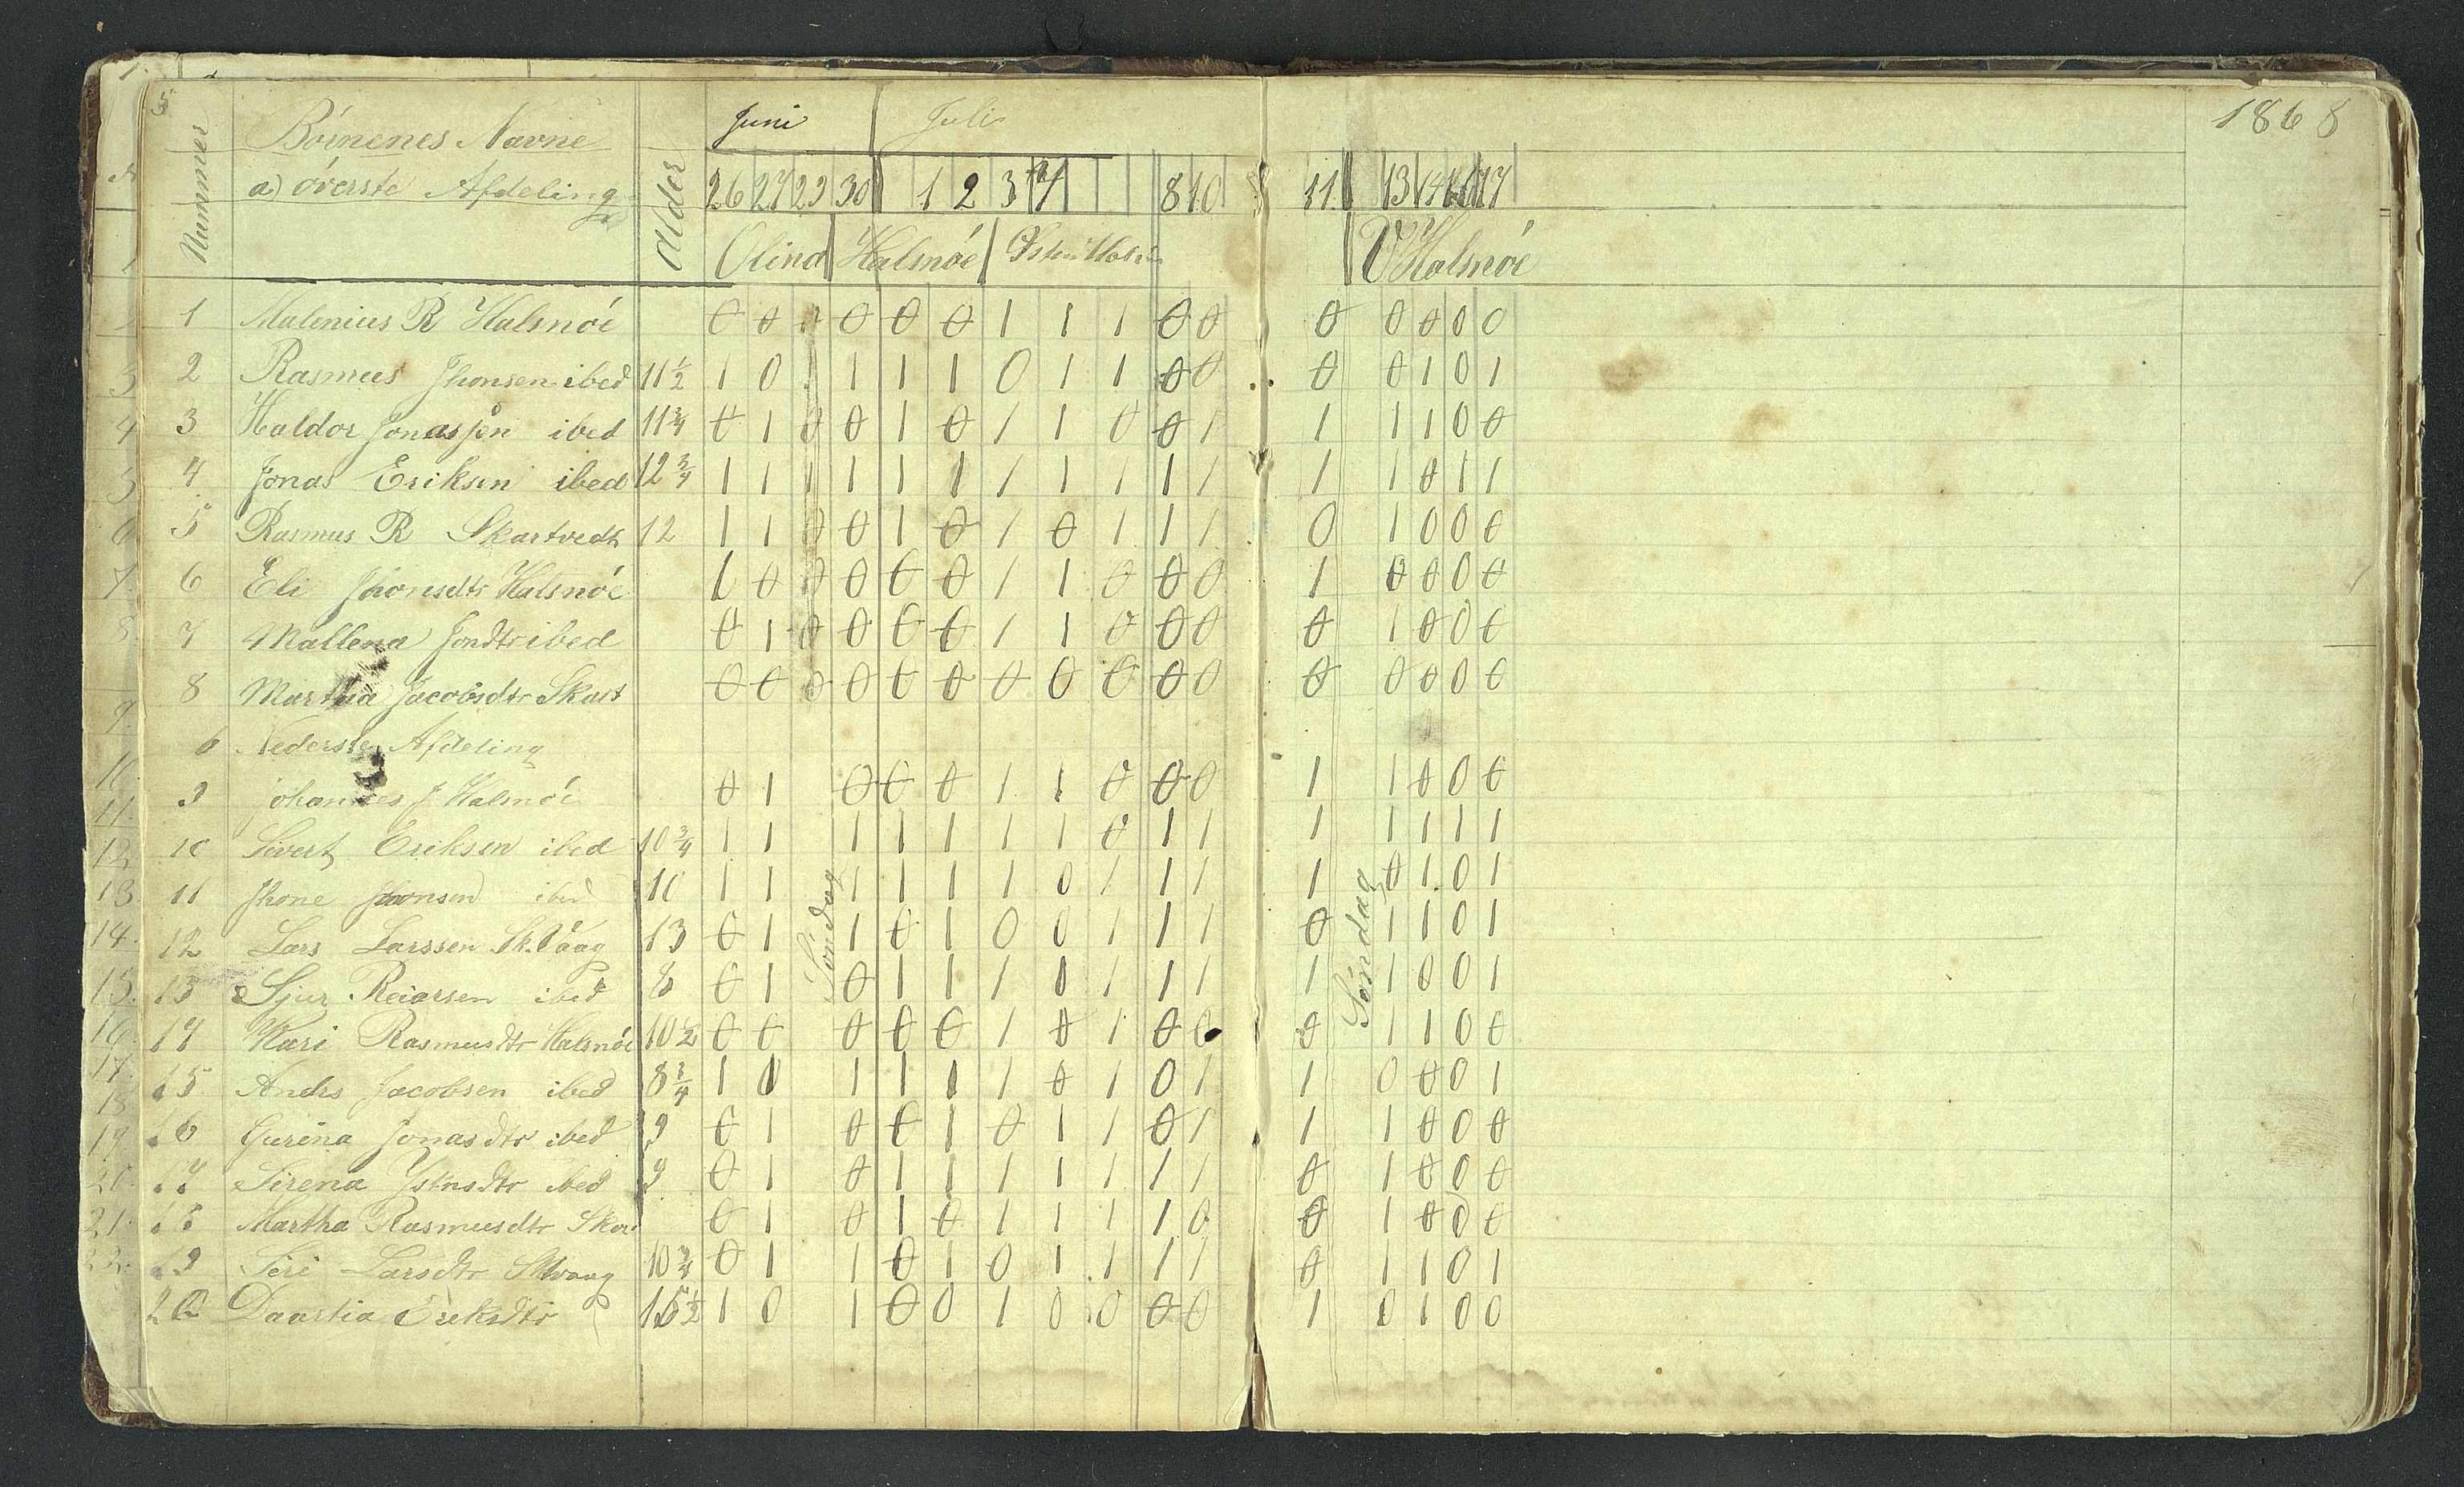 5 Juni Juli 1868
Nummer Börnenes Navne Alder
a) överste Afdeling 26 27 29 30 1 2 3 4 8 10 11 13 14 16 17
Ølind Halsnöe V Halsnöe
1 Malenius R Halsnöe 0 0 0 0 0 0 1 1 1 0 0 0 0 0 0 0
2 Rasmus Jhonsen ibed 11½ 1 0 1 1 1 0 1 1 0 0 0 0 1 0 1
3 Haldor Jonassen ibed 11¾ 0 1 0 0 1 0 1 1 0 0 1 1 1 1 0 0
4 Jonas Eriksen ibed 12¾ 1 1 1 1 1 1 1 1 1 1 1 1 1 0 1 1
5 Rasmus R Skartvedt 12 1 1 0 0 1 0 1 0 1 1 1 0 1 0 0 0
6 Eli Jhonsdtr Halsnöe 1 0 0 0 0 0 1 1 0 0 0 1 0 0 0 0
7 Mallena Jondtr ibed 0 1 0 0 0 0 1 1 0 0 0 0 1 0 0 0
8 Martha Jacobsdtr Skart 0 0 0 0 0 0 0 0 0 0 0 0 0 0 0 0
b Nederste Afdeling
9 Johannes J Halsnöe 0 1 0 0 0 1 1 0 0 0 1 1 0 0 0
10 Sivert Eriksen ibed 10¾ 1 1 1 1 1 1 1 0 1 1 1 1 1 1 1
11 Jhone Jhonsen ibed 10 1 1 1 1 1 1 0 1 1 1 1 0 1 0 1
12 Lars Larssen Sk.Vaag 13 0 1 1 0 1 0 0 1 1 1 0 1 1 0 1
13 Sjur Reiarsen ibed 8 0 1 0 1 1 1 0 1 1 1 1 1 0 0 1
14 Kari Rasmusdtr Halsnöe 10½ 0 0 0 0 0 1 0 1 0 0 0 1 1 0 0
15 Andrs Jacobsen ibed 8¾ 1 0 1 1 1 1 0 1 0 1 1 0 0 0 1
16 Gurina Jonasdtr ibed 9 0 1 0 0 1 0 1 1 0 1 1 1 0 0 0
17 Sirena Ystnsdtr ibed 9 0 1 0 1 1 1 1 1 1 1 0 1 0 0 0
18 Martha Rasmusdtr Skar 0 1 0 1 0 1 1 1 1 0 0 1 0 0 0
19 Siri Larsdtr Skvaag 10¾ 0 1 1 0 1 0 1 1 1 1 0 1 1 0 1
20 Daartia Eriksdtr 15½ 1 0 1 0 0 1 0 0 0 0 1 0 1 0 0
Söndag
Söndag